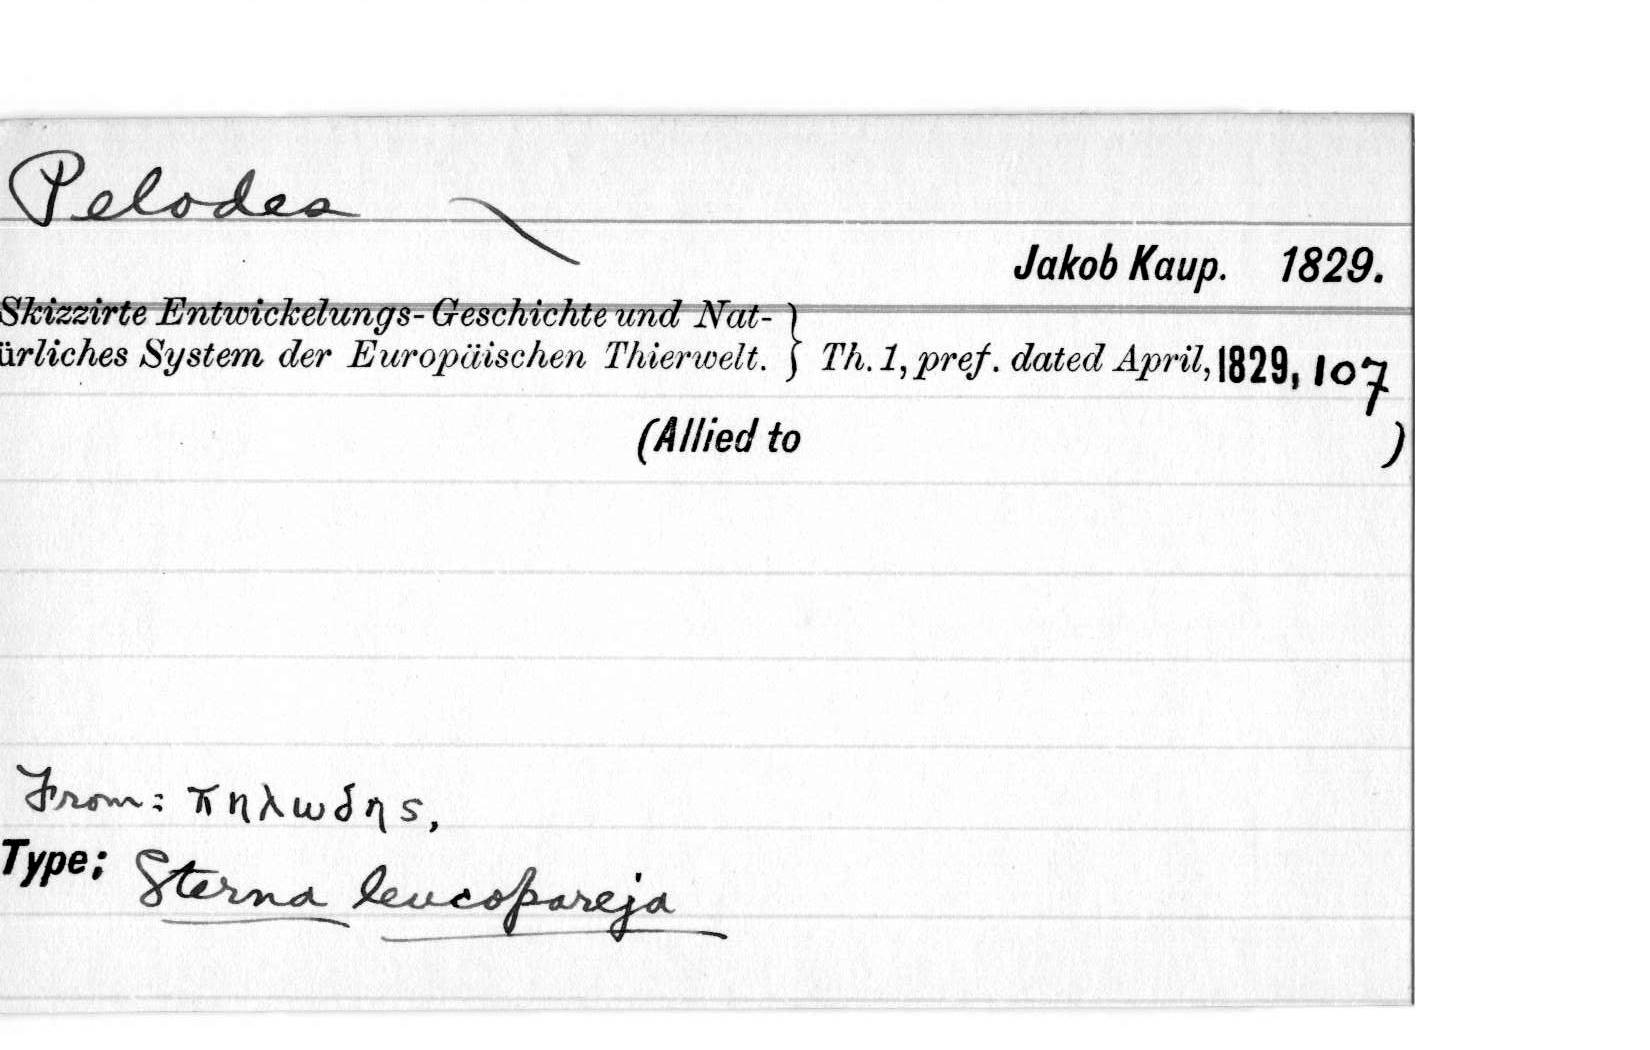 Pelodes
Jakob Kaup. 1829.
Skizzirte Entwickelungs-Geschichte und Nat-
ürliches System der Europäischen Thierwelt. } Th. 1, pref. dated April, 1829, 107
(Allied to )
From: πηλωδης,
Type; Sterna leucopareja